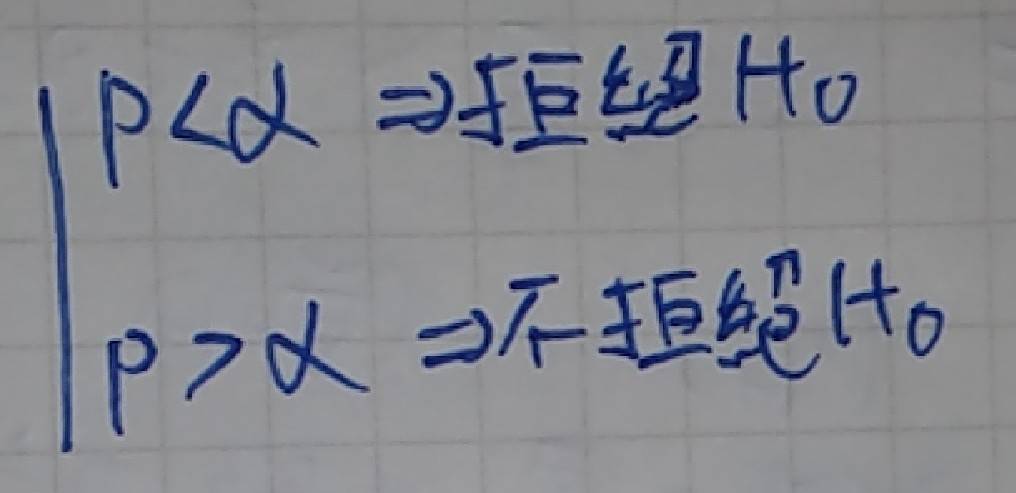 P<α ⇒拒絕H0
P>α ⇒不拒絕H0